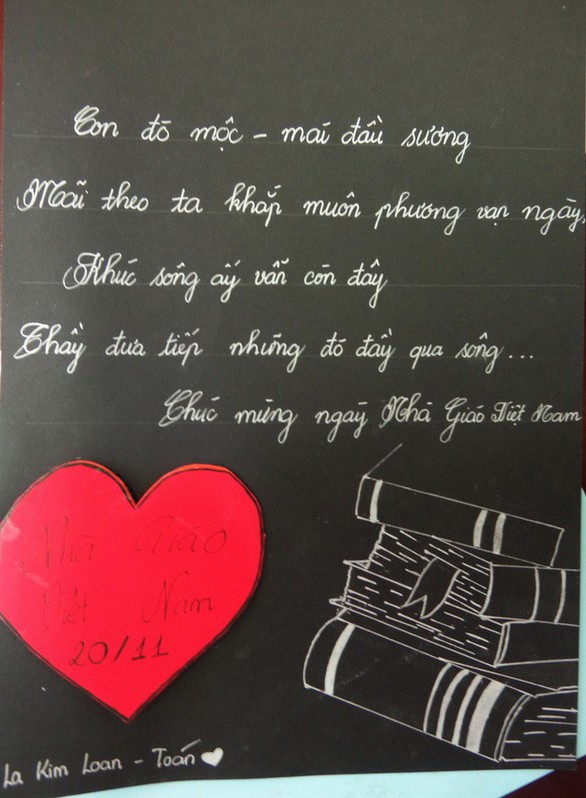 Con đò mộc - mái đầu sương
Mãi theo ta khắp muôn phương vạn ngày,
Khúc sông ấy vẫn còn đây
Thầy đưa tiếp những đò đầy qua sông...
Chúc mừng ngày Nhà Giáo Việt Nam
Nhà Giáo
Việt Nam
20/11
La Kim Loan - Toán